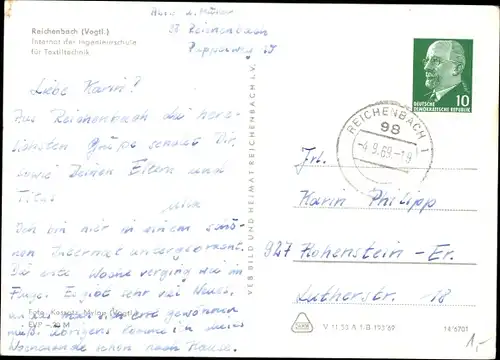 Reichenbach (Vogtl.)
Internat der Ingenieurschule
für Textiltechnik
98 Reichenbach
Liebe Karin!
Aus Reichenbach die herz-
lichsten Grüße sendet Dir,
sowie Deinen Eltern und
Ich bin hier in einem schö-
nen Internat untergebracht.
Die erste Woche verging wie im
Fluge. Es gibt sehr viel Neues,
muß. Übrigens komme ich dieses
Wochenende schon nach Hause.
Foto: Konstr. Meler (Vogtl.)
EVP -,20 M
VEB BILD UND HEIMAT REICHENBACH I. V.
DEUTSCHE
DEMOKRATISCHE REPUBLIK
10
REICHENBACH 1
98
-4.9.69.-19
Frl.
Karin Philipp
927 Hohenstein-Er.
Lutherstr. 18
V 11 53 A 1-B 195/69
14/6701
1,-